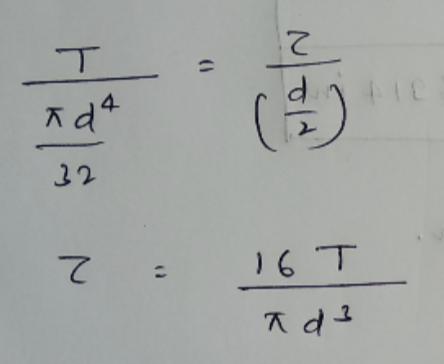 T / (πd⁴ / 32) = τ / (d/2)
τ = 16 T / πd³